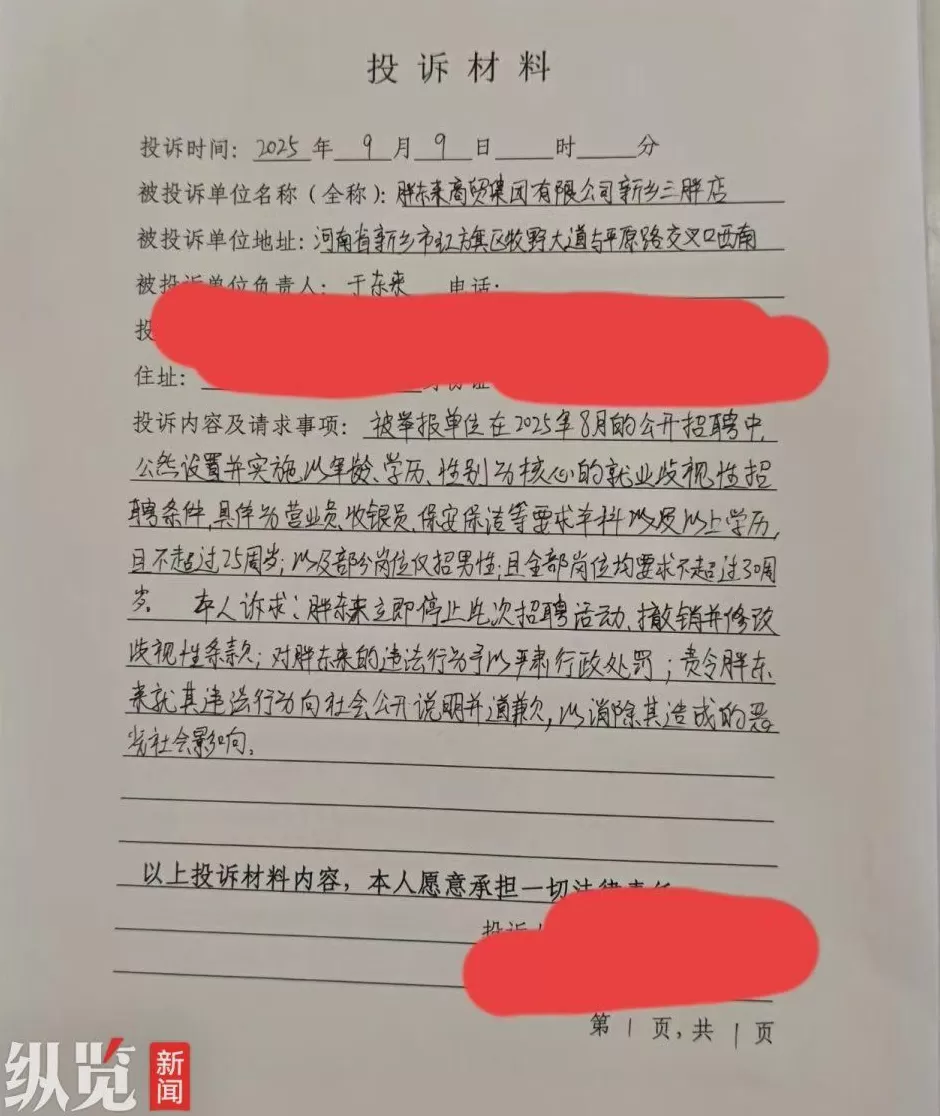 投诉材料
投诉时间：2025年9月9日 时 分
被投诉单位名称（全称）：胖东来商贸集团有限公司新乡三胖店
被投诉单位地址：河南省新乡市红旗区牧野大道与平原路交叉口西南
被投诉单位负责人：于东来 电话：
投
住址：
投诉内容及请求事项：被举报单位在2025年8月的公开招聘中，
公然设置并实施以年龄、学历、性别为核心的就业歧视性招
聘条件，具体为营业员、收银员、保安保洁等要求本科以及以上学历，
且不超过25周岁；以及部分岗位仅招男性；且全部岗位均要求不超过30周
岁。 本人诉求：胖东来立即停止此次招聘活动、撤销并修改
歧视性条款；对胖东来的违法行为予以严肃行政处罚；责令胖东
来就其违法行为向社会公开说明并道歉，以消除其造成的恶
劣社会影响。
以上投诉材料内容，本人愿意承担一切法律责任
投诉
第1页，共1页
纵览
新闻